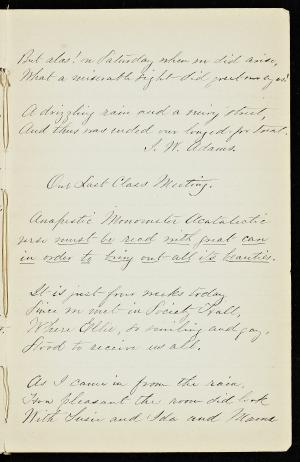 But alas! on Saturday when we did arise,
What a miserable sight did greet our eyes!
A drizzling rain and a miry street,
And thus was ended our longed-for treat.
J. W. Adams.
Our Last Class Meeting.
Anapestic Monometer Acatalectic
verse must be read with great care
in order to bring out all its beauties.
It is just four weeks today
Since we met in Society Hall,
Where Ellie, so smiling and gay,
Stood to receive us all.
As I came in from the rain,
How pleasant the room did look
With Susie and Ida and Mame